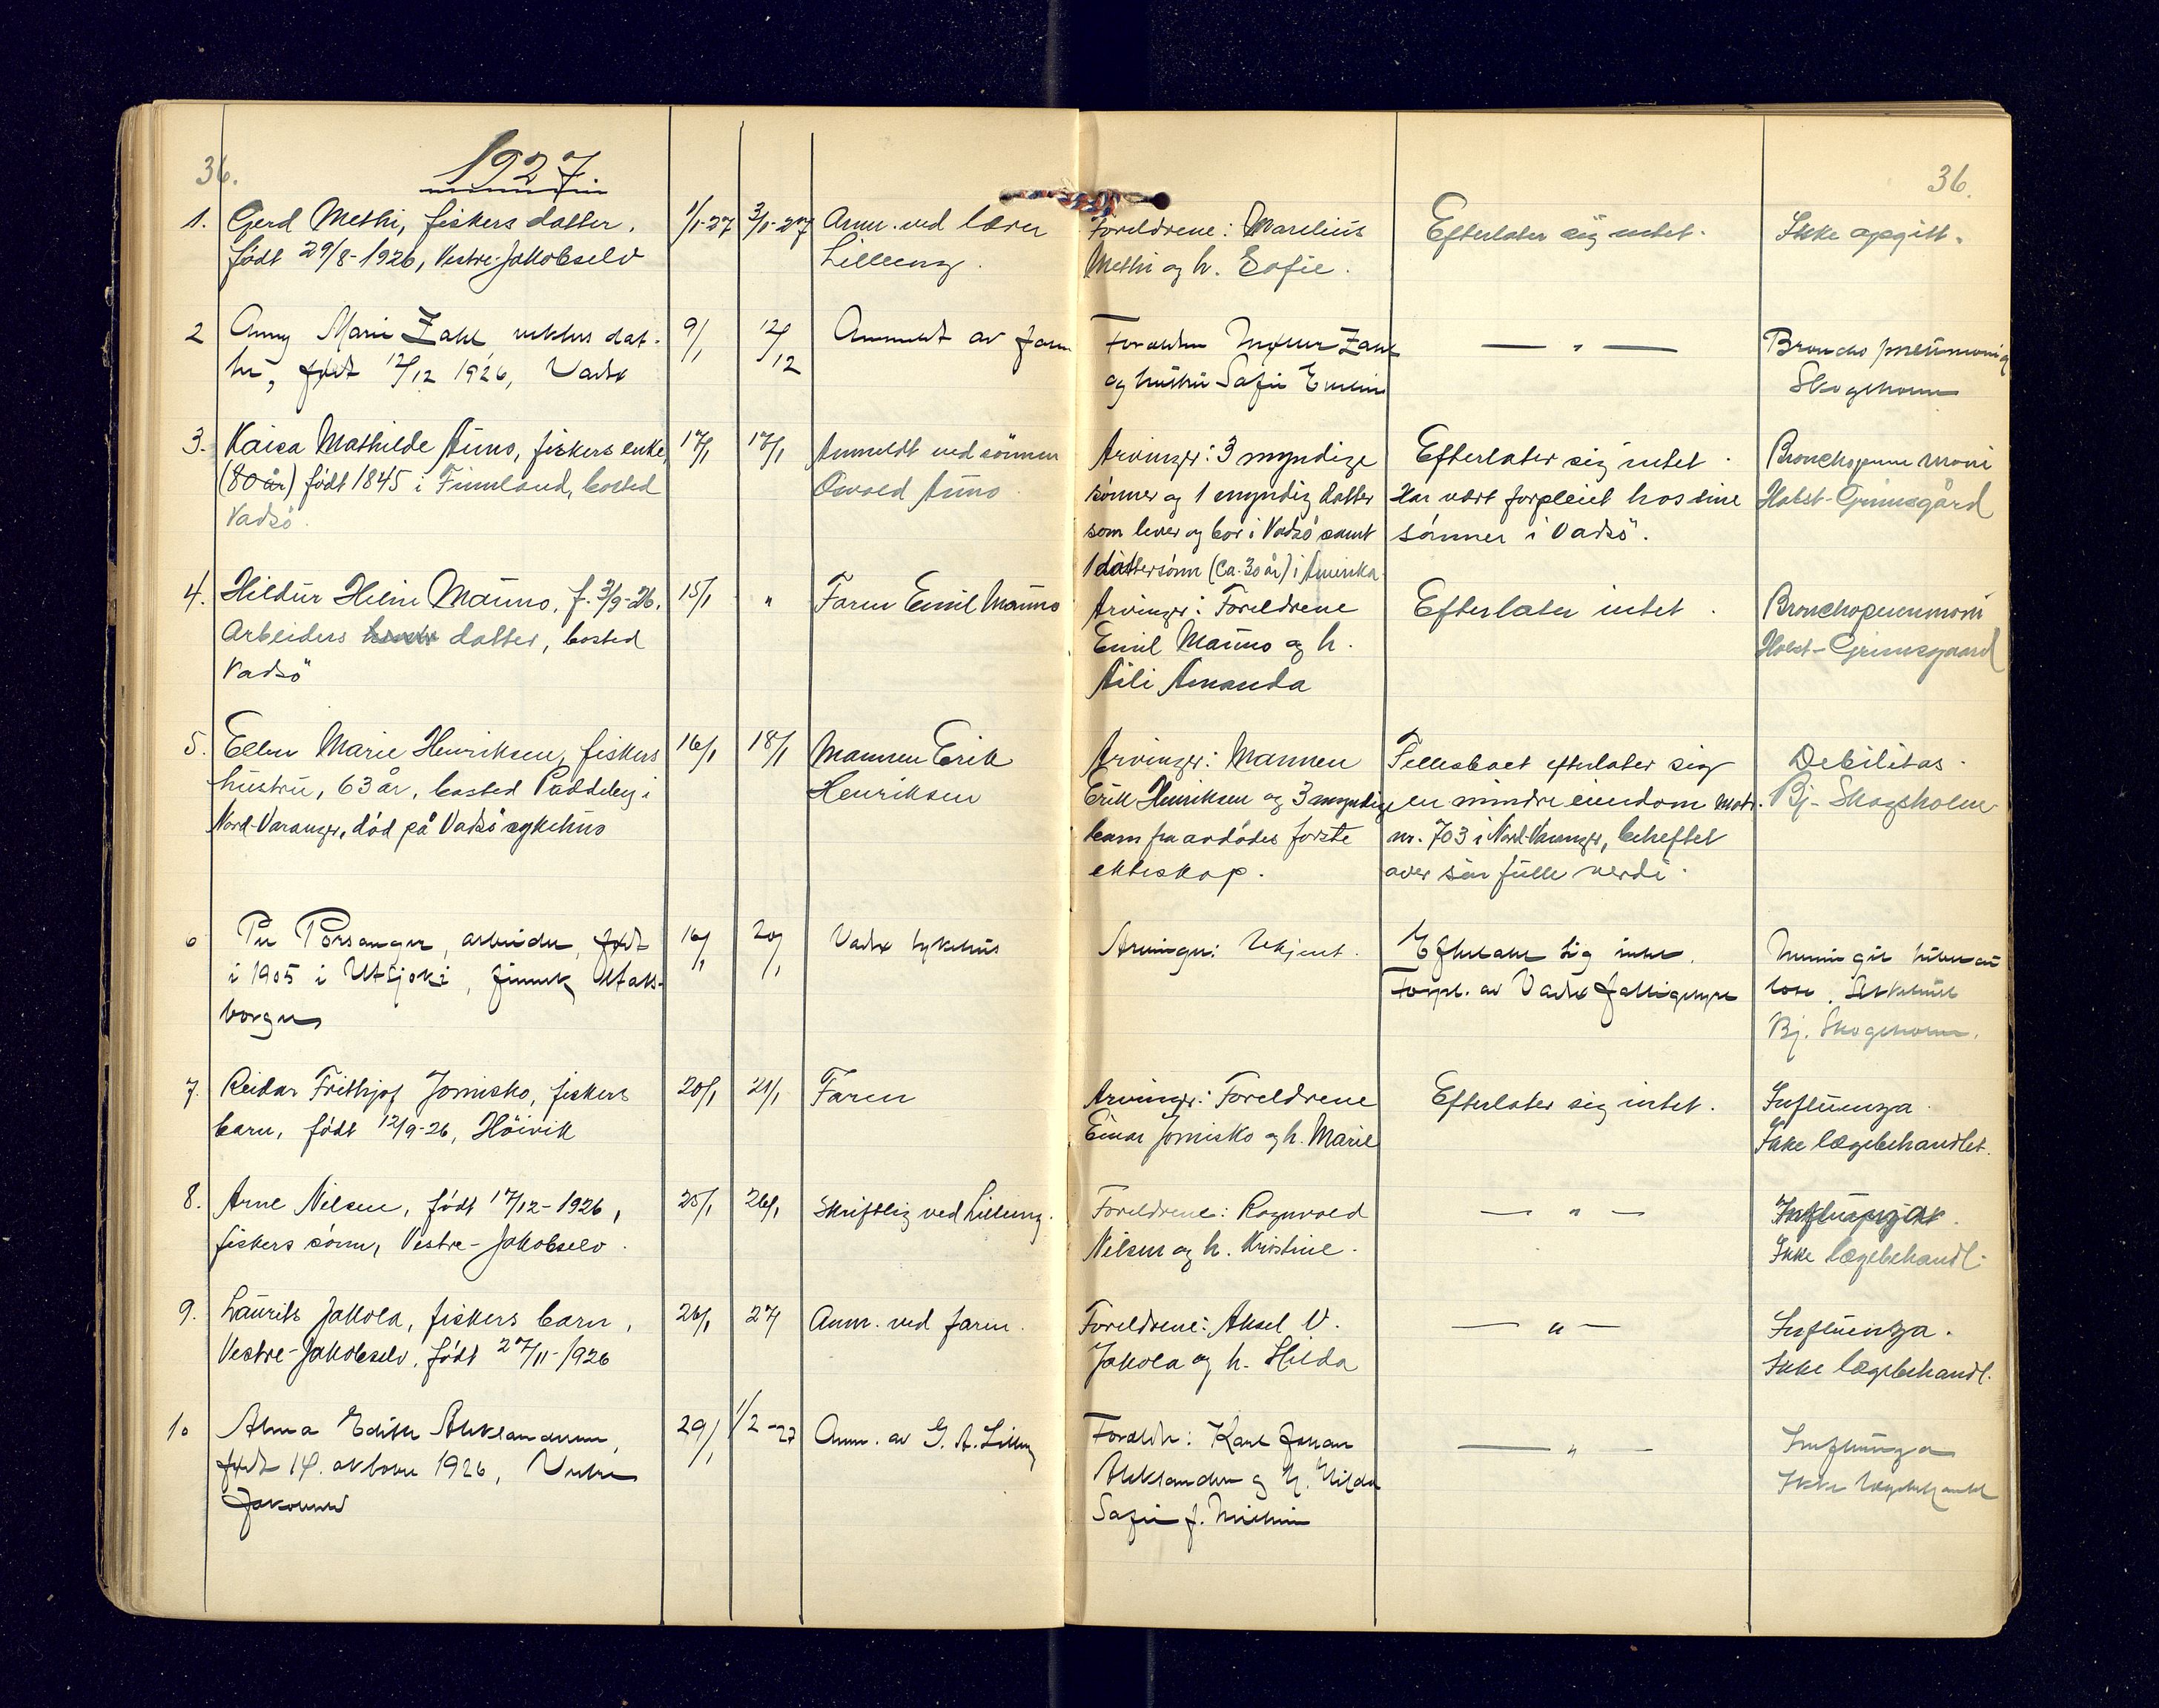 36.
1927
36.
1. Gerd Methi, fiskers datter,
født 29/8-1926, Vestre-Jakobselv
1/1-27
3/1-27
Anm. ved lærer
Lilleeng.
Foreldrene: Marelius
Methi og h. Sofie.
Efterlater sig intet.
Ikke opgitt.
2 Anny Marie Zahl, vekters dat-
ter, født 12/12 1926, Vadsø
9/1
12/12
Anmeldt av faren
Foreldre Zahl
og hustru Sofie
— " —
Broncho pneumonia
Skogsholm
3. Kaisa Mathilde Auno, fiskers enke,
(80 år) født 1845 i Finnland, bosted
Vadsö.
17/1
17/1
Anmeldt ved sönnen
Osvald Auno.
Arvinger: 3 myndige
sönner og 1 myndig datter
som lever og bor i Vadsö samt
1 dattersönn (ca. 30 år) i Amerika.
Efterlater sig intet.
Har vært forpleiet hos sine
sönner i Vadsö.
Bronchopneumoni
Holst-Grimsgård
4. Hildur Helne Mauno, f. 3/9-26,
Arbeiders datter, bosted
Vadsö
15/1
"
Faren Emil Mauno
Arvinger: Foreldrene
Emil Mauno og h.
Aili Amanda
Efterlater intet.
Bronchopneumoni
Holst-Grimsgaard
5. Ellen Marie Henriksen, fiskers
hustru, 63 år, bosted Paddeby i
Nord-Varanger, död på Vadsö sykehus
16/1
18/1
Mannen Erik
Henriksen
Arvinger: Mannen
Erik Henriksen og 3 myndige
barn fra avdödes forste
ekteskap.
Fellesboet efterlater sig
en mindre eiendom Matr.
nr. 703 i Nord-Varanger, beheftet
over sin fulle verdi.
Debilitas.
Bj. Skogsholm
6 Per Porsanger, arbeider, født
i 1905 i Utsjoki, finnsk stats-
borger
16/1
20/1
Vadsø sykehus
Arvinger: Ukjent.
Efterlater sig intet.
Forpl. av Vadsø fattigvesen
Bj. Skogsholm.
7. Reidar Frithjof Jomisko, fiskers
barn, födt 12/9-26, Höivik
20/1
21/1
Faren
Arvinger: Foreldrene
Einar Jomisko og h. Marie
Efterlater sig intet.
Influenza.
Ikke lægebehandlet.
8. Arne Nilsen, født 17/12-1926,
fiskers sönn, Vestre-Jakobselv.
25/1
26/1
Skriftlig ved Lilleeng.
Foreldrene: Ragnvald
Nilsen og h. Kristine.
— " —
Ikke lægebehandl.
9. Laurits Jakola, fiskers barn,
Vestre-Jakobselv, født 27/11-1926
26/1
27/1
Anm. ved faren.
Foreldrene: Aksel V.
Jakola og h. Hilda
— " —
Influenza.
Ikke lægebehandl.
10 Alma Edith Aleksandersen,
født 14. oktober 1926, Vestre
Jakobselv
29/1
1/2-27
Anm. av G. A. Lilleeng
Foreldre: Karl Johan
Aleksandersen og h. Hilda
Sofie f.
— " —
Influenza
Ikke lægebehandlet